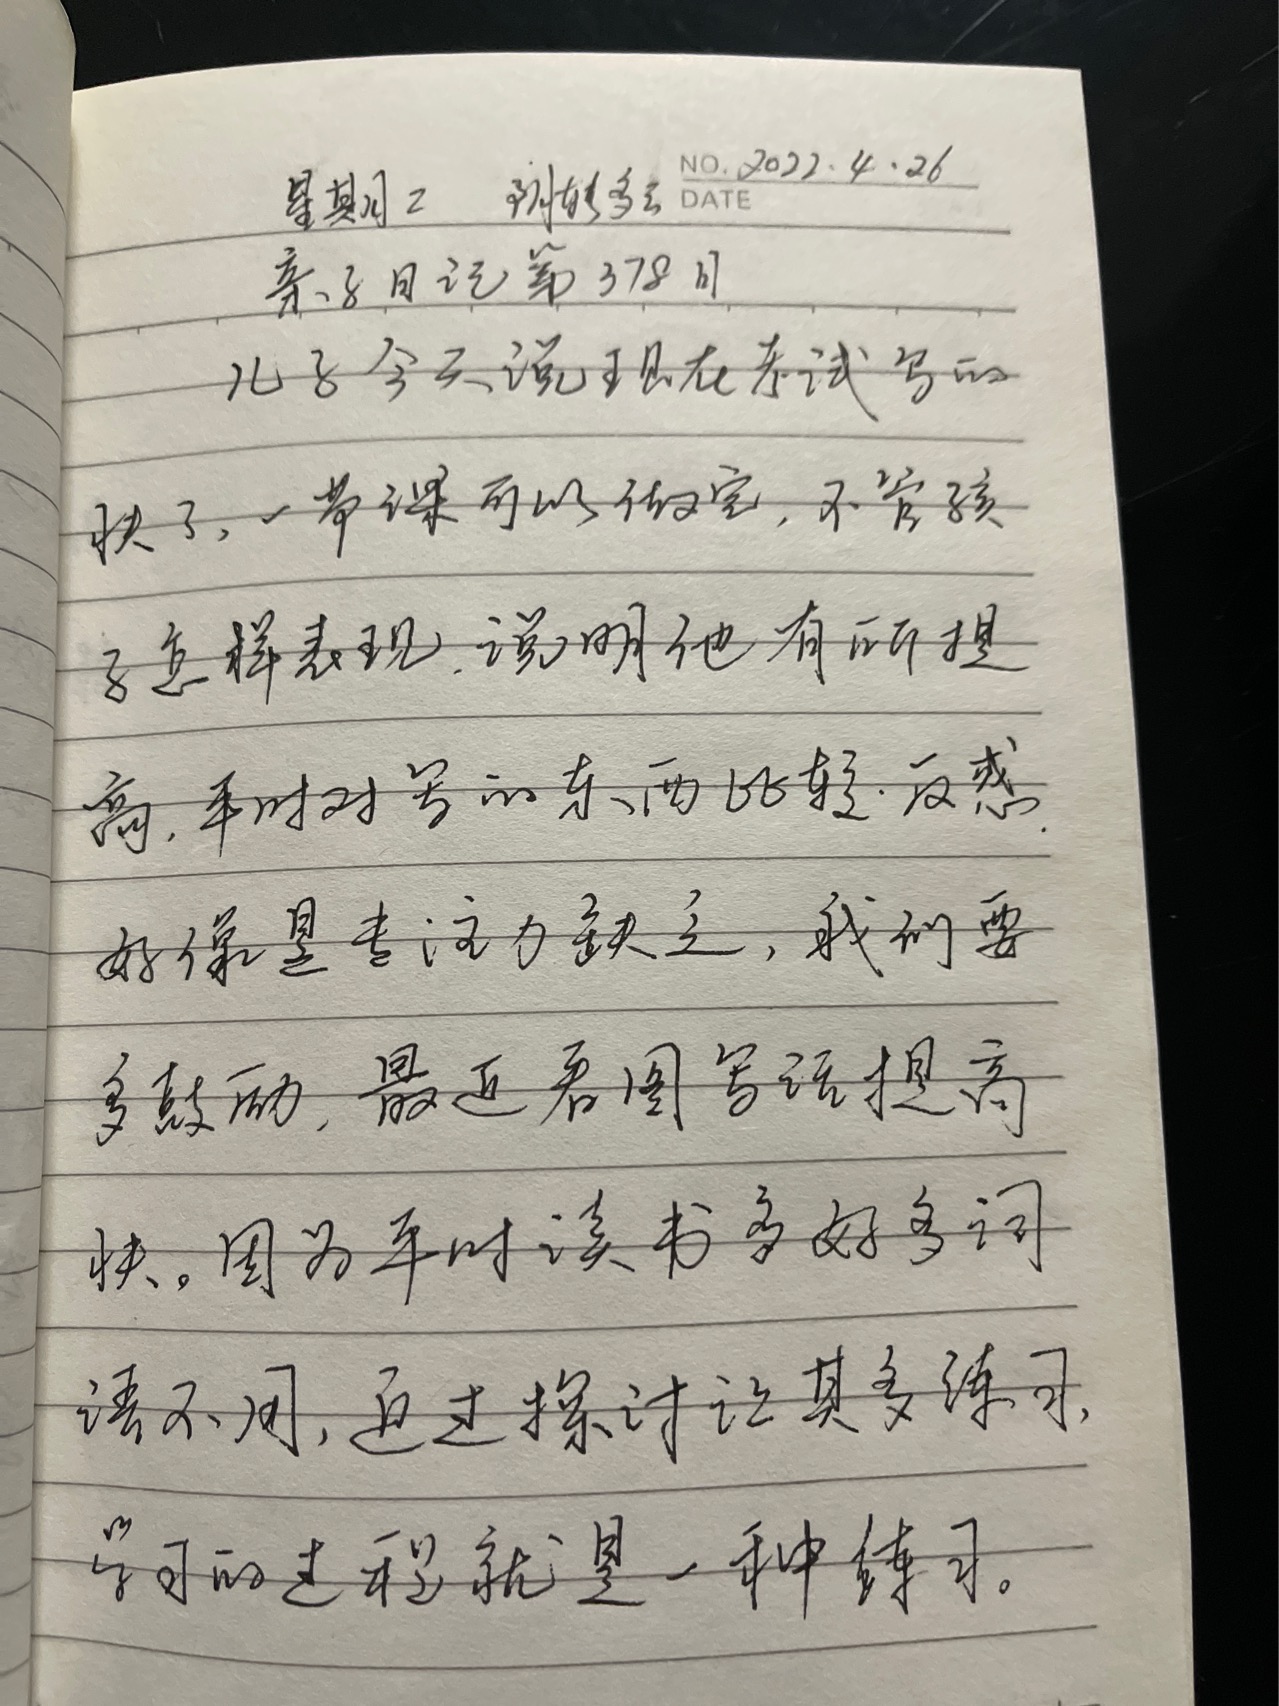 NO. 2022.4.26
DATE
星期二 阴转多云
亲子日记第378日
儿子今天说现在考试写的
快了,一节课可以做完,不管孩
子怎样表现,说明他有所提
高,平时对写的东西比较反感,
好像是专注力缺乏,我们要
多鼓励,最近看图写话提高
快。因为平时读书多好多词
语不用,通过探讨让其多练习,
学习的过程就是一种练习。